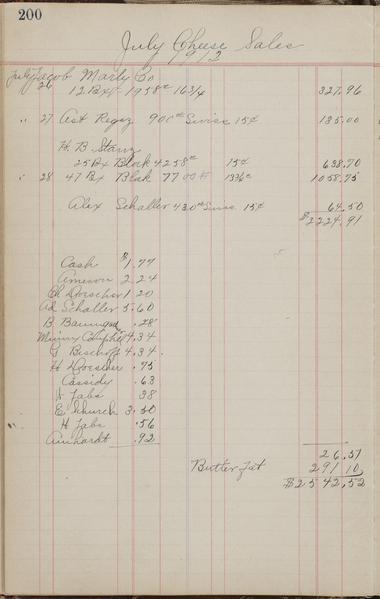 200
July Cheese Sales
1912
July Jacob Marty Co
26 12 Bxs 1958# 16 3/4 327.96
" 27 Ast Regez 900# Swiss 15¢ 135.00
H. B. Stanz
25 Bx Block 4258# 15¢ 638.70
" 28 47 Bx Block 7700# 13 3/4¢ 1058.75
Alex Schaller 430# Swiss 15¢ 64.50
$2224.91
Cash $1.77
Ameson 2.24
Ch Doescher 1.20
Ad Schaller 5.60
B .28
4.34
G Bischoff 4.34
H Doescher .75
Cassidy .63
H Jabs 38
E Church 3.50
H Jabs .56
Amhardt .92
26.51
Butter Fat 291 10
$2542.52